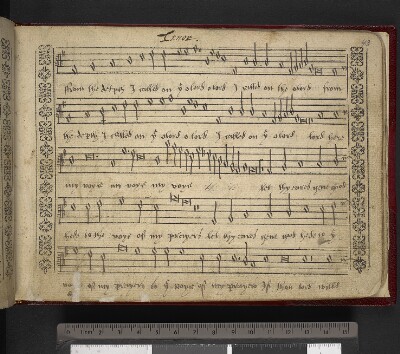 Tenor.
from the depth I called on yͤ o lord o lord I called on the o lord from
the depth I called on yͤ o lord o lord I called on yͤ o lord lord here
my voyce my voyce my voyce let thy eares gyve good
hede to the voyce of my prayers let thy eares gyve good hede to yͤ
voyce of my prayers to yͤ voyce of my prayers If thou lord wilt